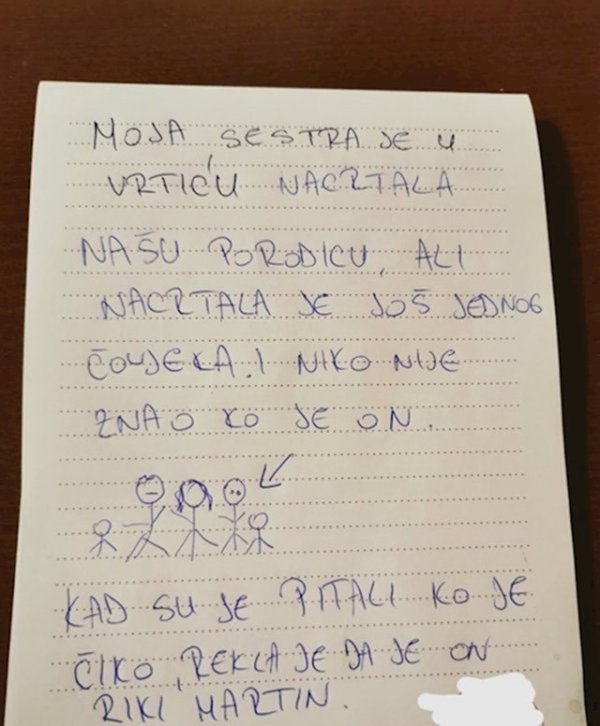 MOJA SESTRA JE U
VRTIĆU NACRTALA
NAŠU PORODICU, ALI
NACRTALA JE JOŠ JEDNOG
ČOVJEKA. I NIKO NIJE
ZNAO KO JE ON.
KAD SU JE PITALI KO JE
ČIKO, REKLA JE DA JE ON
RIKI MARTIN.